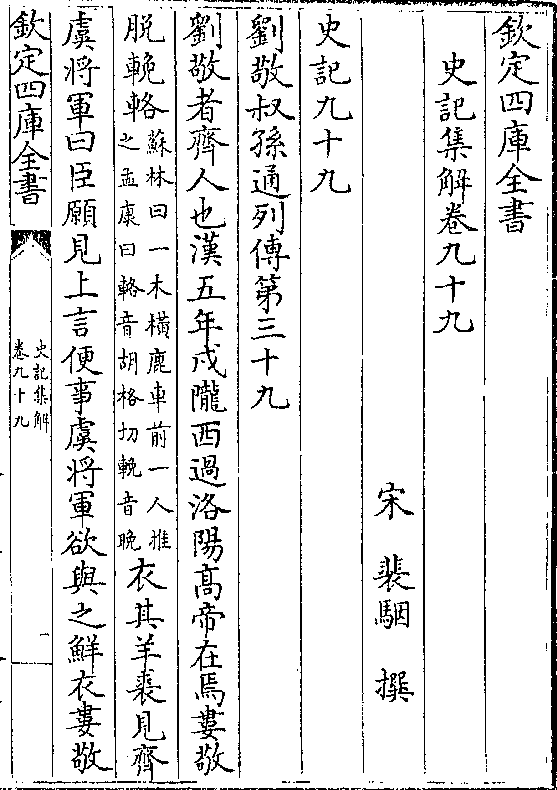 欽定四庫全書
史記集解卷九十九
宋 裴駰 撰
史記九十九
劉敬叔孫通列傳第三十九
劉敬者齊人也漢五年戍隴西過洛陽高帝在焉婁敬
脱輓輅
蘇林曰一木橫鹿車前一人推
之孟康曰輅音胡格切輓音晚
衣其羊裘見齊
虞將軍曰臣願見上言便事虞將軍欲與之鮮衣婁敬
欽定四庫全書
史記集解
卷九十九
一